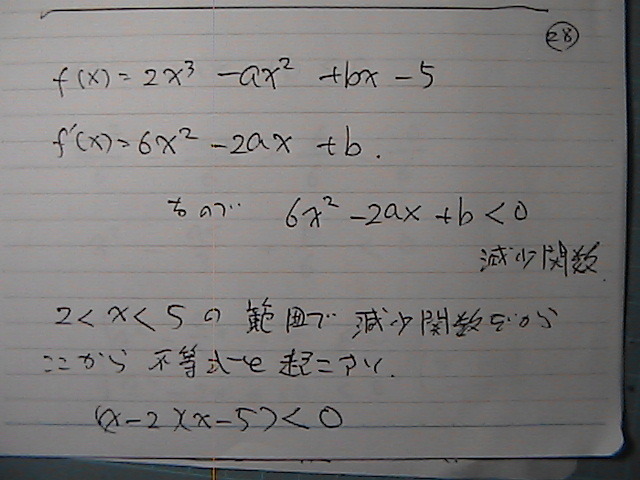 28
f(x)=2x³ -ax² +bx-5
f'(x)=6x² -2ax +b.
なので 6x² -2ax +b<0
減少関数
2<x<5の 範囲で 減少関数だから
ここから 不等式を 起こすと.
(x-2)(x-5)<0